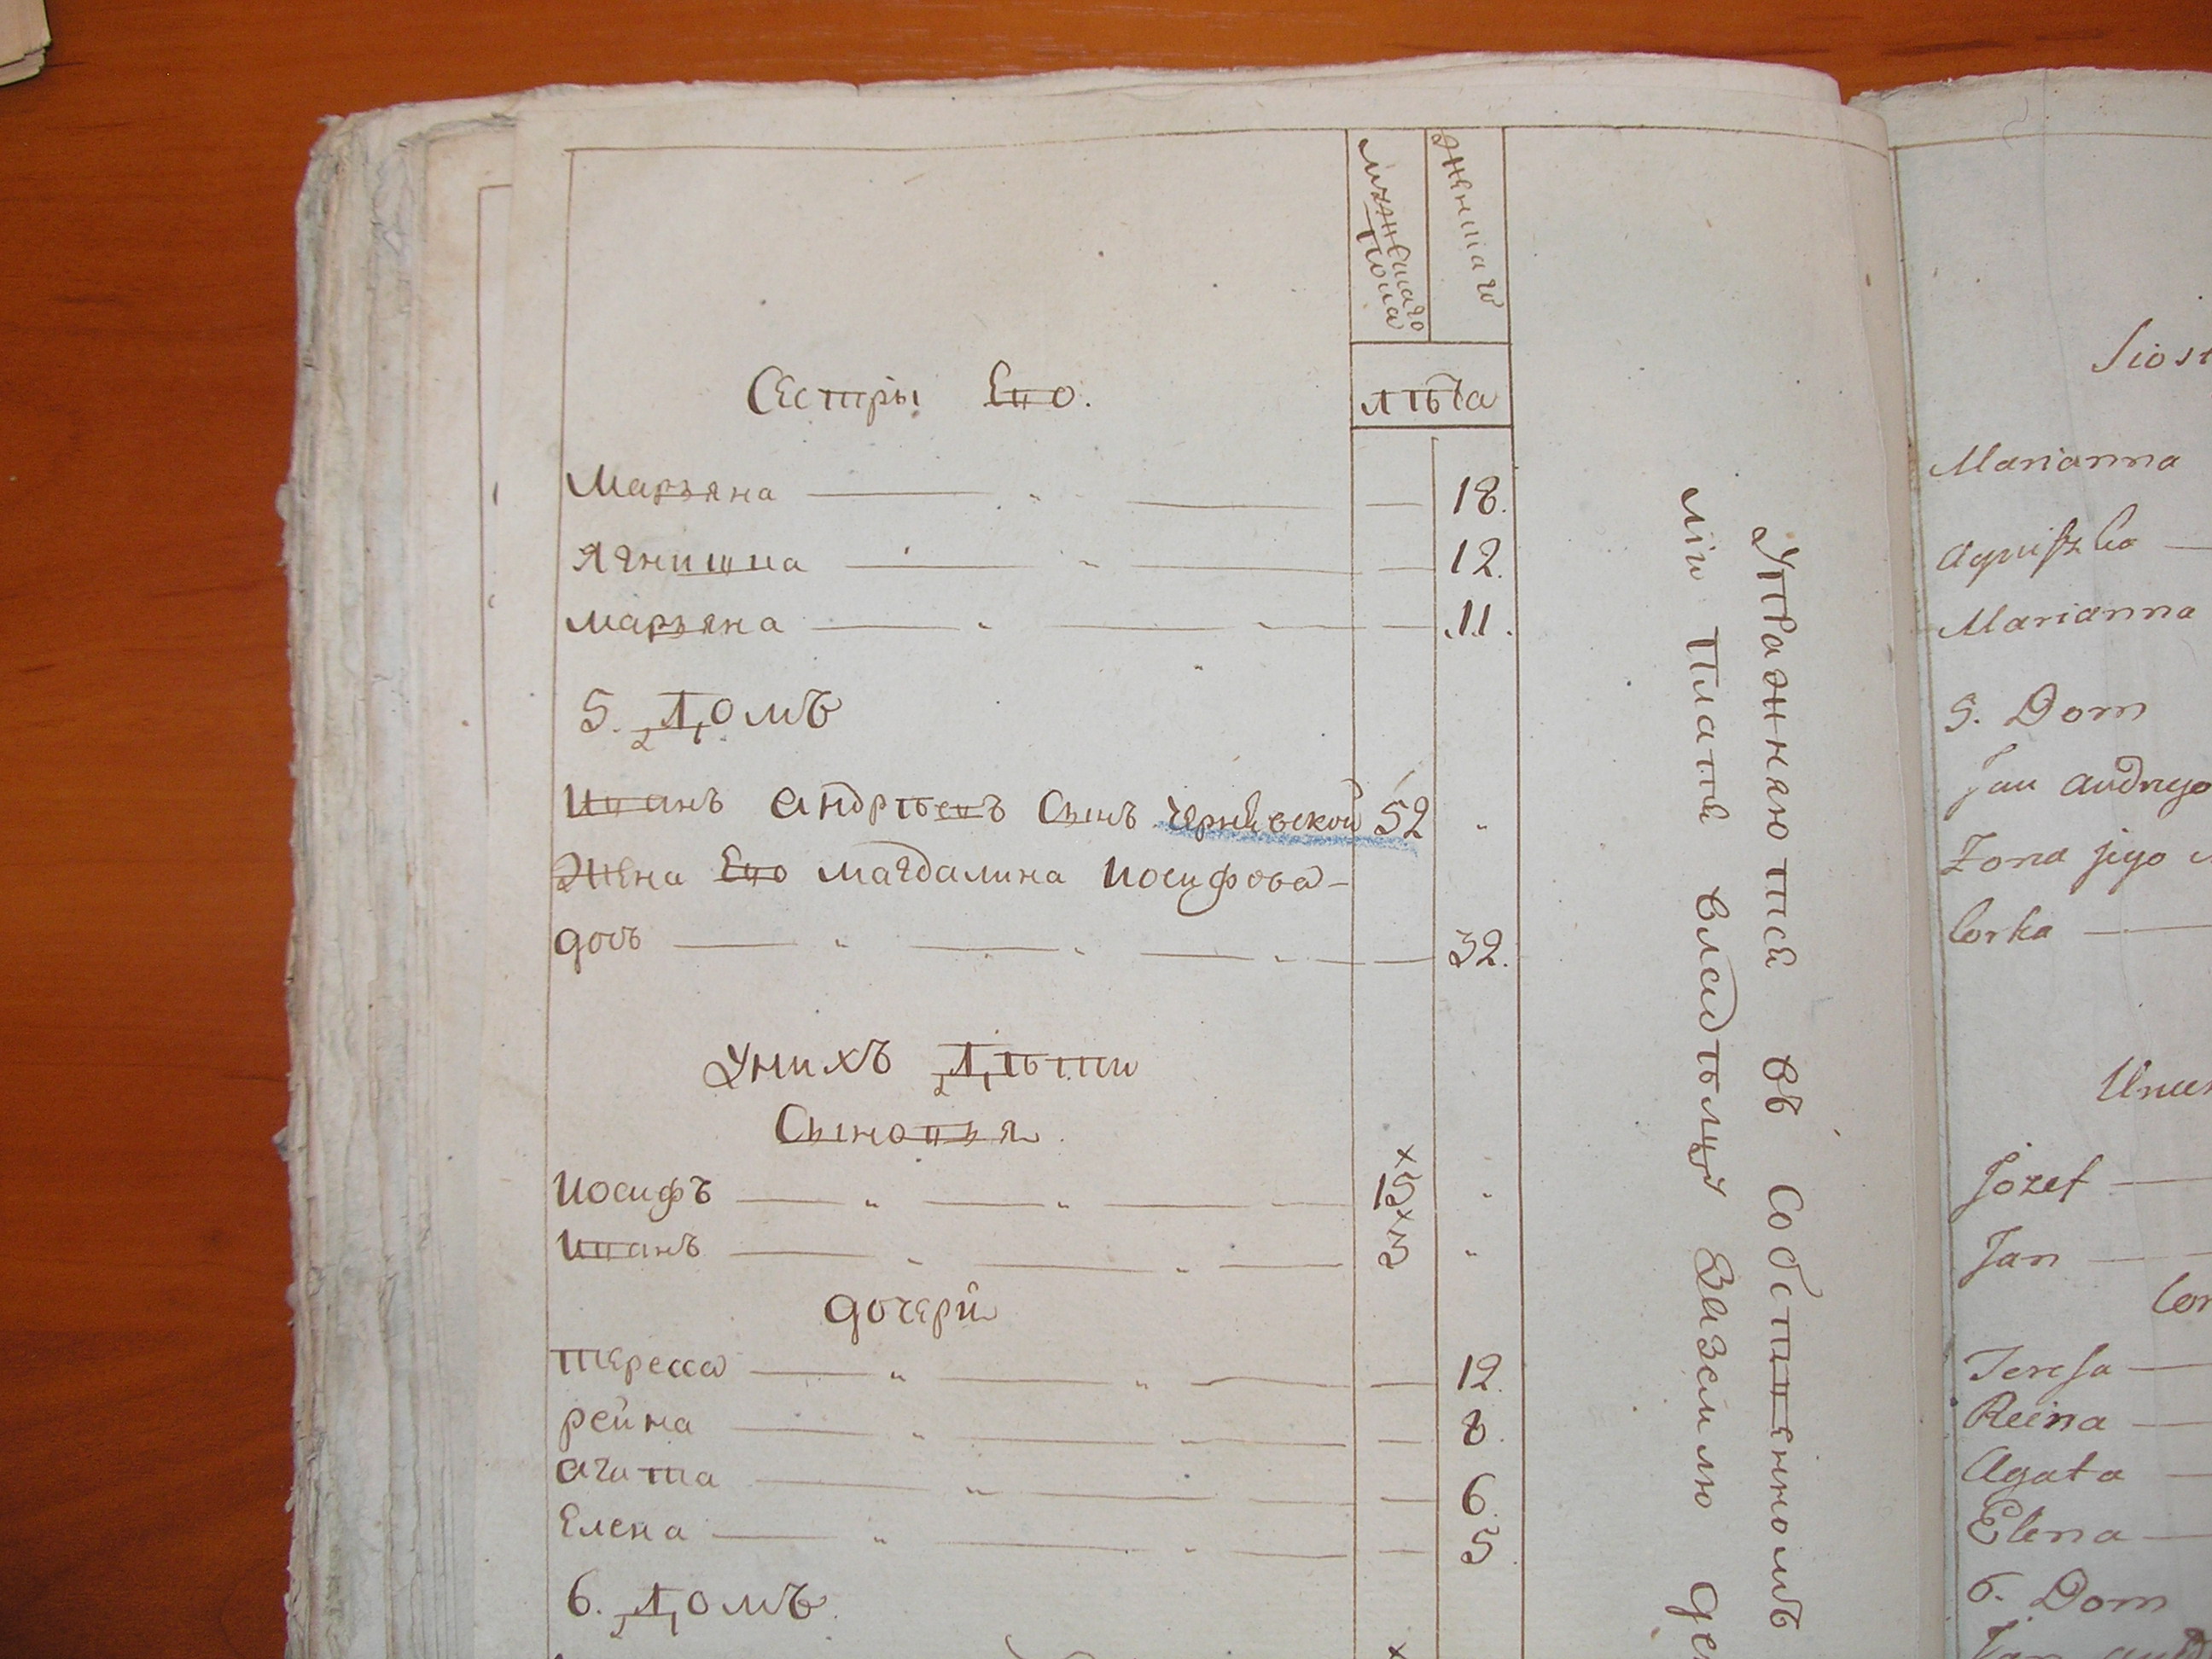 мужескаго
пола
женскаго
лѣта
Сестры Его.
Марьяна 18.
Ягнишка 12.
Марьяна 11.
5. Домъ
Иванъ Андрѣевъ Сынъ 52
Жена Его Магдалина Иосифова
дочь 32.
У нихъ Дѣти
Сыновья
Иосифъ 15 х
Иванъ 3 х
дочери
Тересса 12.
Рейна 8.
Агата 6.
Елена 5
6. Домъ
Упражняются въ Собственномъ
платя владѣльцу за землю
Siost
Marianna
Agniszka
Marianna
5. Dom
Jan Andrzejo
Zona jego
Corka
Unich
Jozef
Jan
Cor
Teresa
Reina
Agata
Elena
6. Dom